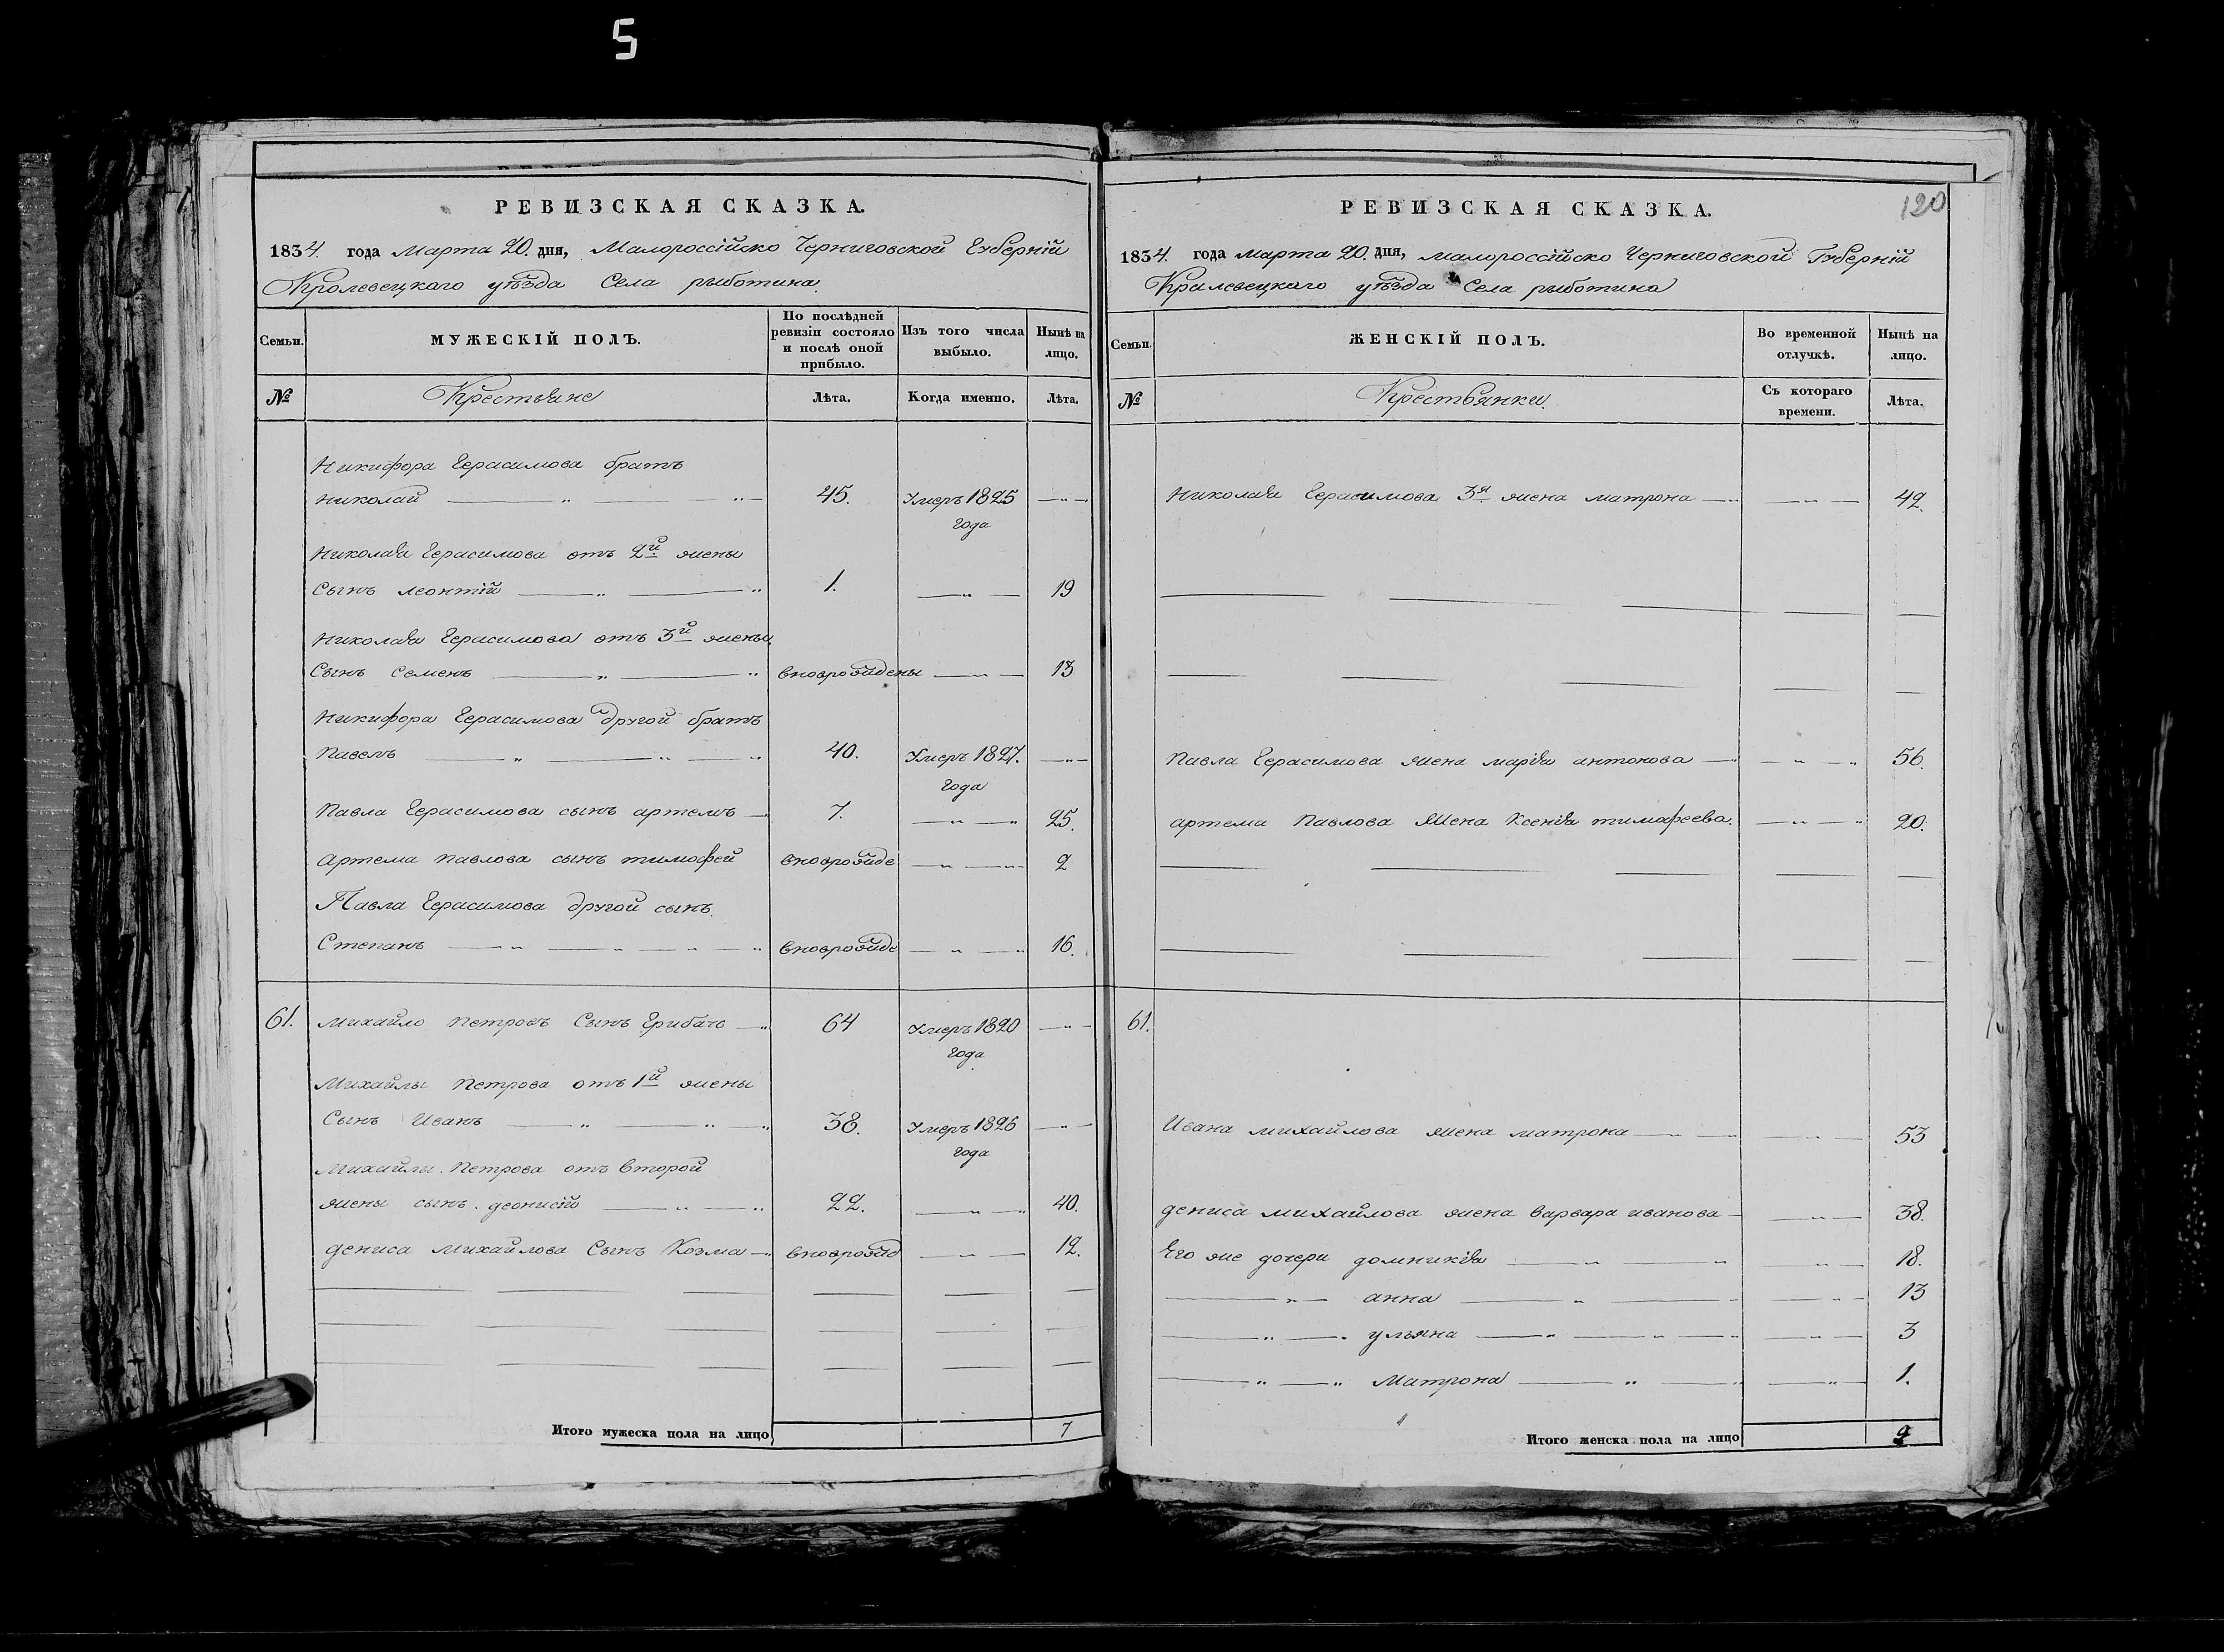 5
РЕВИЗСКАЯ СКАЗКА.
1834. года марта 20. дня, Малороссійско Черниговской Губерній
Кролевецкаго уѣзда Села рыботина.
Семьи.
МУЖЕСКІЙ ПОЛЪ.
По послѣдней ревизіи состояло и послѣ оной прибыло.
Изъ того числа выбыло.
Нынѣ на лицо.
№
Крестьяне
Лѣта.
Когда именно.
Лѣта.
Никифора Герасимова братъ
николай 45. Умеръ 1825 года
Николая Герасимова отъ 2й жены
Сынъ леонтій 1. 19
Николая Герасимова отъ 3й жены
Сынъ Семенъ вноврождены 13
Никифора Герасимова другой братъ
Павелъ 40. Умеръ 1827. года
Павла Герасимова сынъ артемъ 7. 25.
Артема Павлова сынъ тимофей вноврожде 2
Павла Герасимова другой сынъ.
Степанъ вноврожде 16.
61. Михайло Петровъ Сынъ Грибачъ 64 Умеръ 1820 года
Михайлы Петрова отъ 1й жены
Сынъ Иванъ 38. Умеръ 1826 года
Михайлы Петрова отъ второй
жены сынъ деонисій 22. 40.
дениса Михайлова Сынъ Козма вноврожд 12.
Итого мужеска пола на лицо 7
120
РЕВИЗСКАЯ СКАЗКА.
1834. года марта 20. дня, малороссійско Черниговской Губерній
Кралевецкаго уѣзда Села рыботина
Семьи.
ЖЕНСКІЙ ПОЛЪ.
Во временной отлучкѣ.
Нынѣ на лицо.
№
Крестьянки.
Съ котораго времени.
Лѣта.
Николая Герасимова 3я жена матрона 42.
Павла Герасимова жена марія антонова 56.
артема Павлова Жена Ксенія тимофеева. 20.
61.
Ивана михайлова жена матрона 53
дениса михайлова жена варвара иванова 38.
Его же дочери домникія 18.
анна 13
ульяна 3
Матрона 1.
Итого женска пола на лицо 9